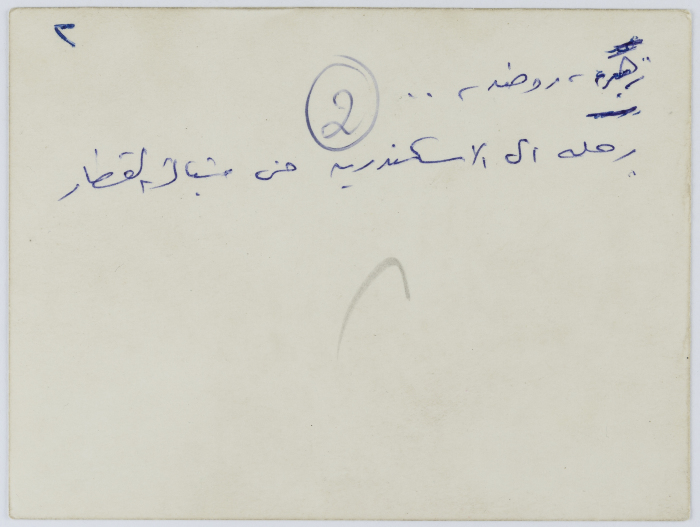 ٢
زهرة، روضه، ..
2
رحله الى الاسكندريه من شباك القطار